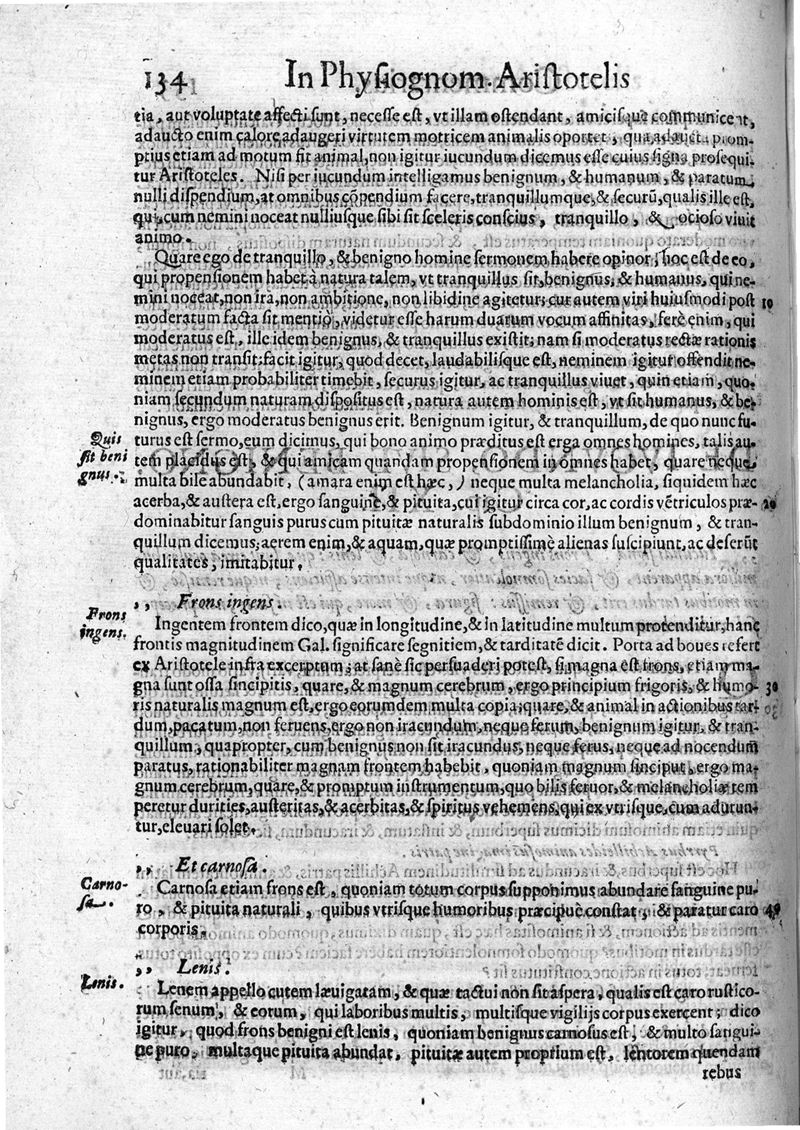 134 In Physiognom. Aristotelis
tia, aut voluptate affecti sunt, necesse est, vt illam ostendant, amicisque communicent,
adaucto enim calore adaugeri virtutem motricem animalis oportet, qua adaucta prom-
ptius etiam ad motum sit animal, non igitur iucundum dicemus esse cuius signa prosequi-
tur Aristoteles. Nisi per iucundum intelligamus benignum, & humanum, & paratum
nulli dispendium, at omnibus cõpendium facere, tranquillumque, & securũ, qualis ille est,
qui cum nemini noceat nulliusque sibi sit sceleris conscius, tranquillo, & ocioso viuit
animo.
Quare ego de tranquillo, & benigno homine sermonem habere opinor; hoc est de eo,
qui propensionem habet à natura talem, vt tranquillus sit, benignus, & humanus, qui ne-
mini noceat, non ira, non ambitione, non libidine agitetur; cur autem viri huiusmodi post 10
moderatum facta sit mentio, videtur esse harum duarum vocum affinitas, ferè enim, qui
moderatus est, ille idem benignus, & tranquillus existit; nam si moderatus rectæ rationis
metas non transit; facit igitur, quod decet, laudabilisque est, neminem igitur offendit ne-
minem etiam probabiliter timebit, securus igitur, ac tranquillus viuet, quin etiam, quo-
niam secundum naturam dispositus est, natura autem hominis est, vt sit humanus, & be-
nignus, ergo moderatus benignus erit. Benignum igitur, & tranquillum, de quo nunc fu-
Quis
sit beni
gnus.
turus est sermo, eum dicimus, qui bono animo præditus est erga omnes homines, talis au-
tem placidus est, & qui amicam quandam propensionem in omnes habet, quare neque
multa bile abundabit, (amara enim est hæc,) neque multa melancholia, siquidem hæc
acerba, & austera est, ergo sanguine, & pituita, cui igitur circa cor, ac cordis vẽtriculos præ- 20
dominabitur sanguis purus cum pituitæ naturalis subdominio illum benignum, & tran-
quillum dicemus; aerem enim, & aquam, quæ promptissimè alienas suscipiunt, ac deserũt
qualitates, imitabitur.
,, Frons ingens.
Frons
ingens.
Ingentem frontem dico, quæ in longitudine, & in latitudine multum protenditur, hanc
frontis magnitudinem Gal. significare segnitiem, & tarditatẽ dicit. Porta ad boues refert
ex Aristotele infra excerptum; at sanè sic persuaderi potest, si magna est frons, etiam ma-
gna sunt ossa sincipitis, quare, & magnum cerebrum, ergo principium frigoris, & humo- 30
ris naturalis magnum est, ergo eorumdem multa copia; quare, & animal in actionibus tar-
dum, pacatum, non feruens, ergo non iracundum, neque ferum, benignum igitur, & tran-
quillum, quapropter, cum benignus non sit iracundus, neque ferus, neque ad nocendum
paratus, rationabiliter magnam frontem habebit, quoniam magnum sinciput, ergo ma-
gnum cerebrum, quare, & promptum instrumentum, quo bilis feruor, & melancholiæ tem
peretur durities, austeritas, & acerbitas, & spiritus vehemens, qui ex vtrisque, cum adurun-
tur, eleuari solet.
,, Et carnosa.
Carno-
sa.
Carnosa etiam frons est, quoniam totum corpus supponimus abundare sanguine pu-
ro, & pituita naturali, quibus vtrisque humoribus præcipuè constat, & paratur caro 40
corporis.
,, Lenis.
Lenis.
Lenem appello cutem læuigatam, & quæ tactui non sit aspera, qualis est caro rustico-
rum senum, & eorum, qui laboribus multis, multisque vigilijs corpus exercent; dico
igitur, quod frons benigni est lenis, quoniam benignus carnosus est, & multo sangui-
ne puro, multaque pituita abundat, pituitæ autem proprium est, lentorem quendam
rebus